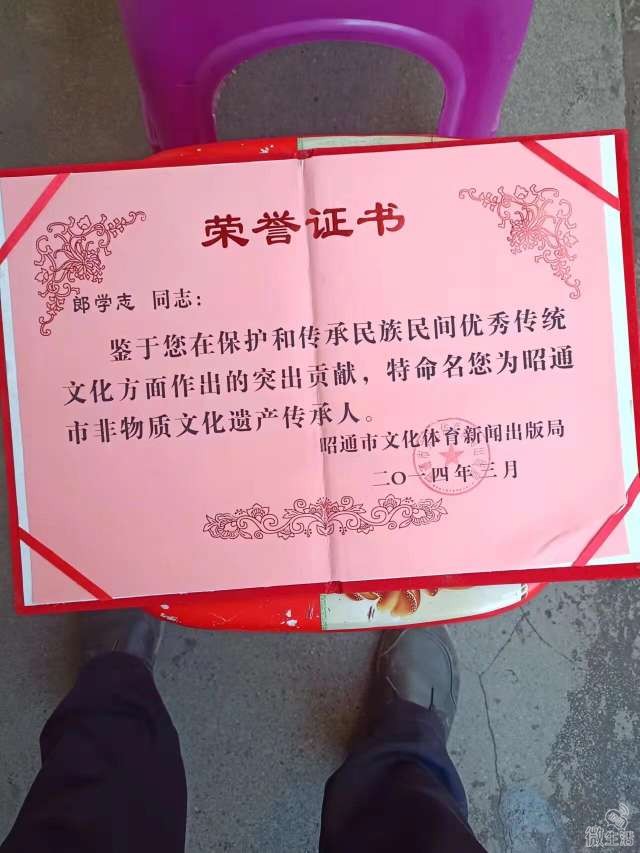 荣誉证书
郎学志 同志：
鉴于您在保护和传承民族民间优秀传统
文化方面作出的突出贡献，特命名您为昭通
市非物质文化遗产传承人。
昭通市文化体育新闻出版局
二〇一四年三月
微生活